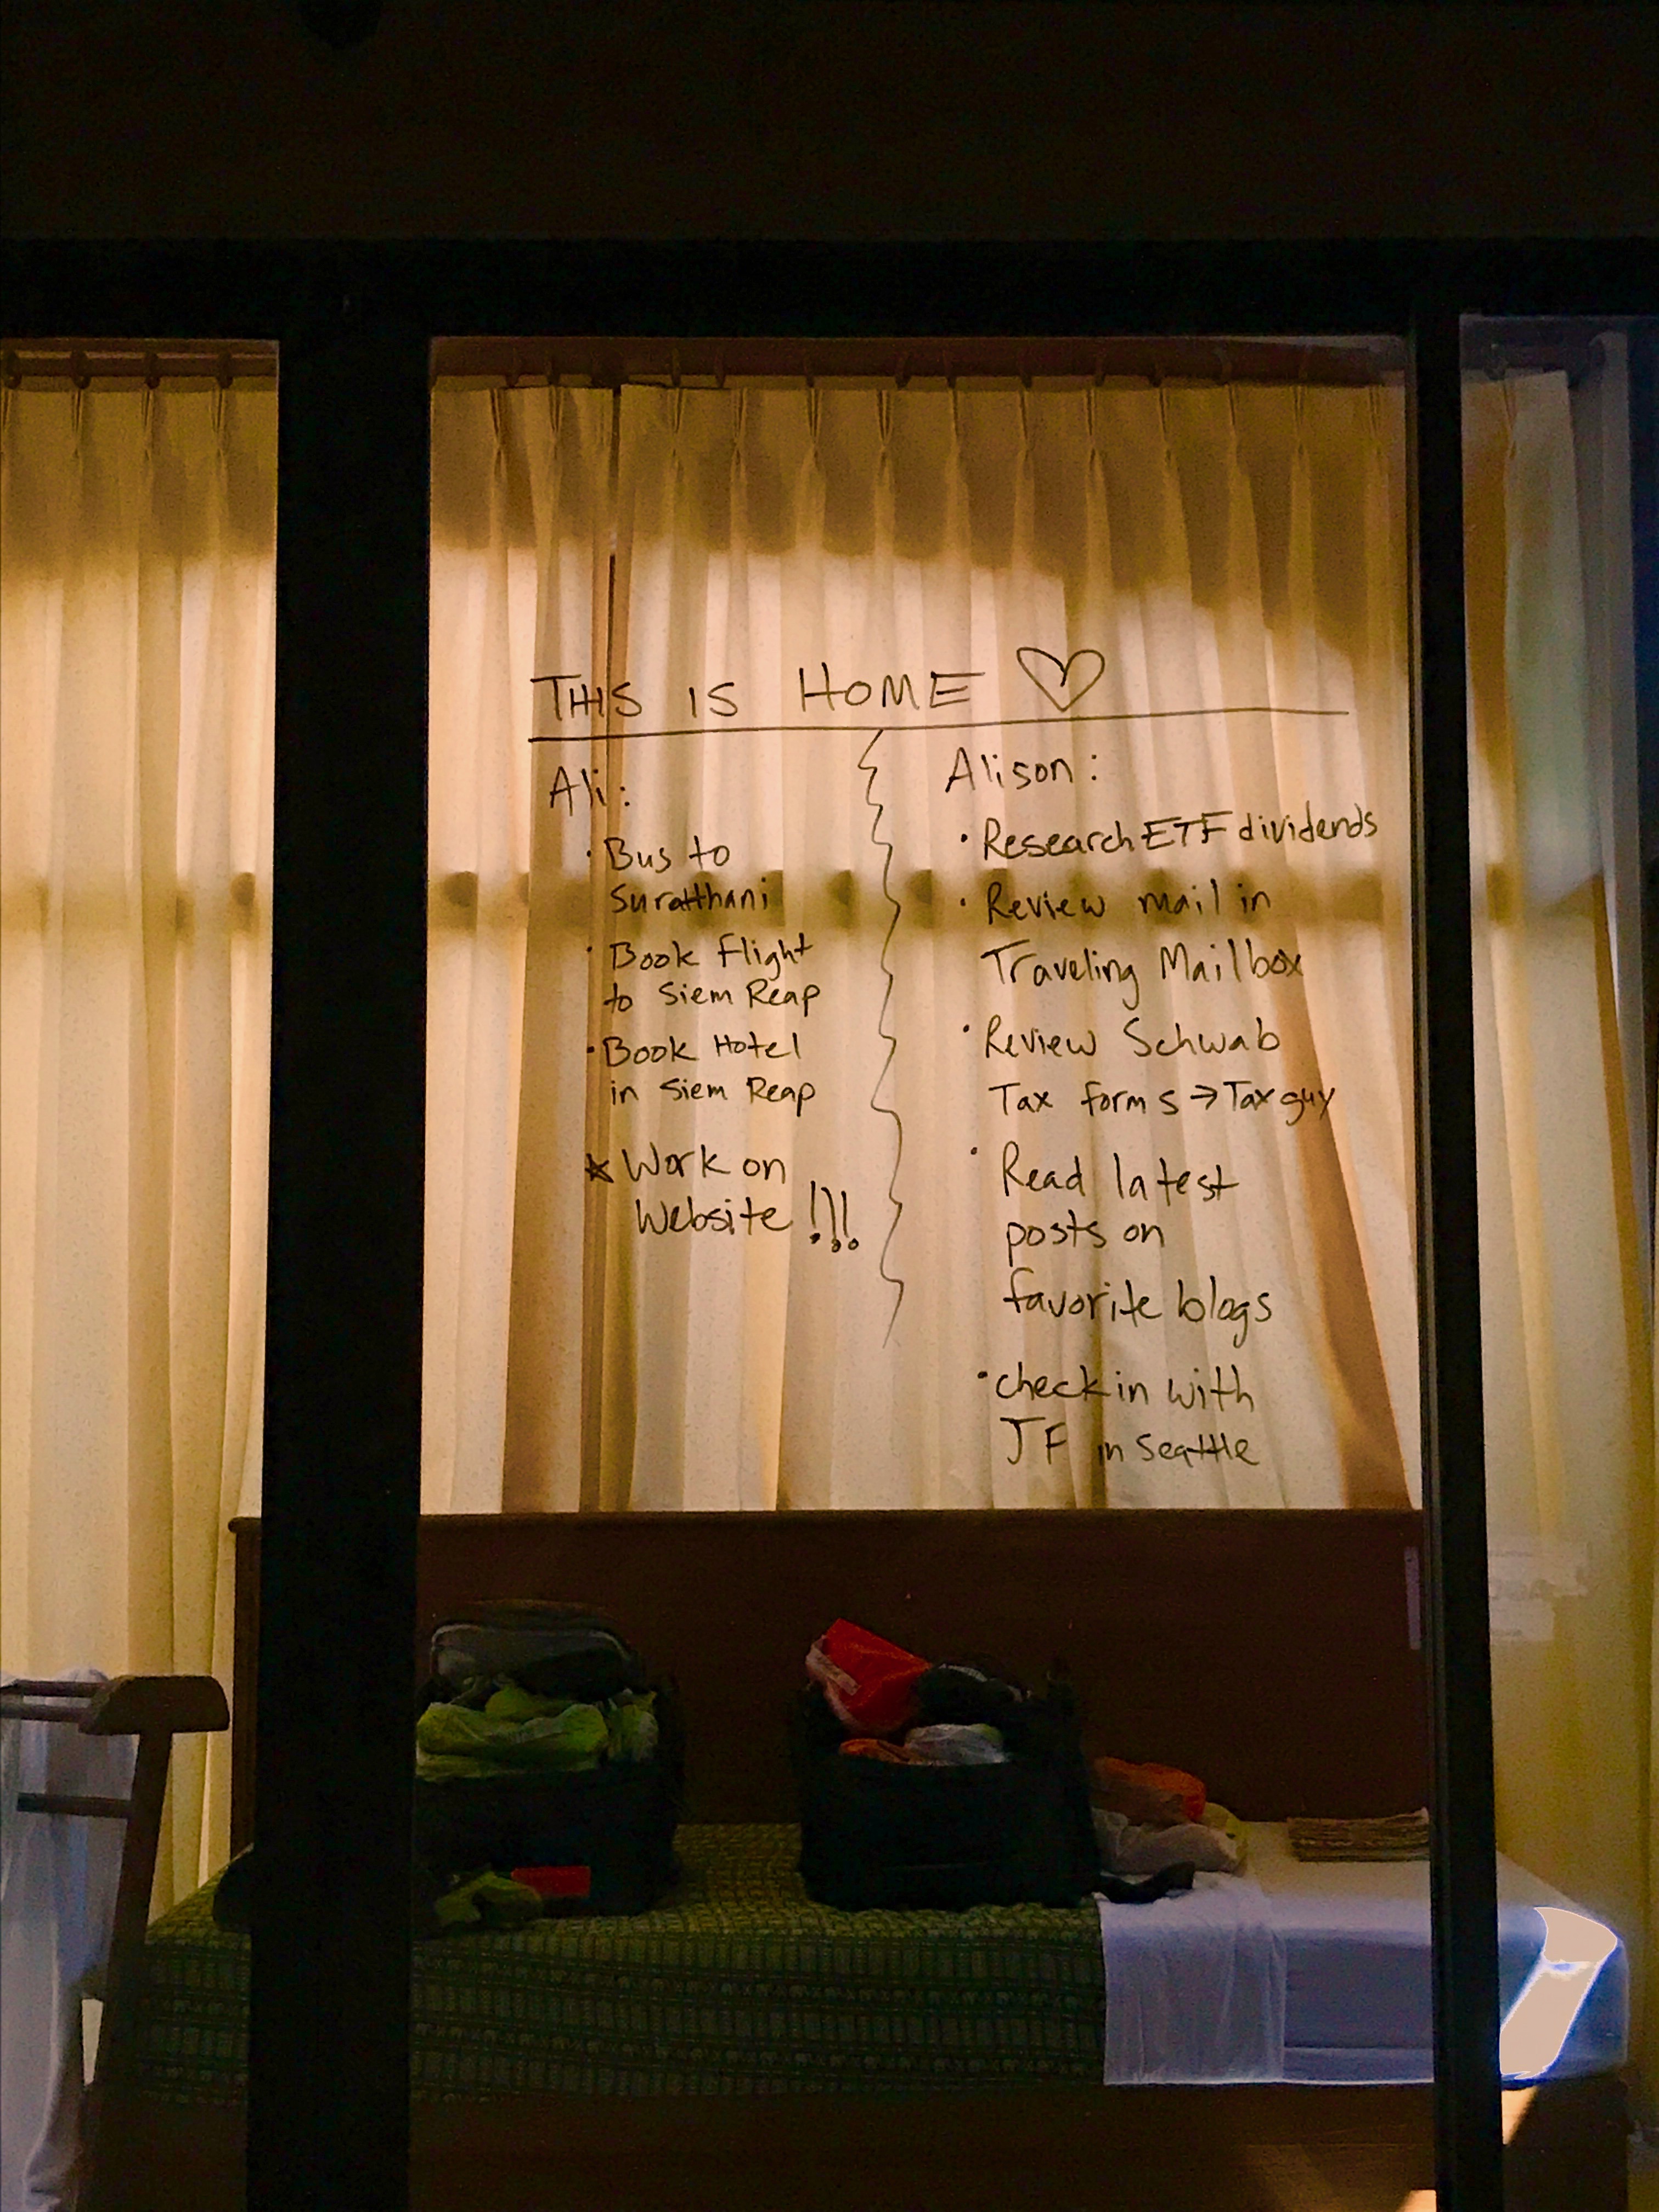 THIS IS HOME
Ali:
· Bus to
Suratthani
· Book Flight
to Siem Reap
· Book Hotel
in Siem Reap
★ Work on
Website !!!
Alison:
· Research ETF dividends
· Review mail in
Traveling Mailbox
· Review Schwab
Tax forms → Tax guy
· Read latest
posts on
favorite blogs
· check in with
JF in Seattle